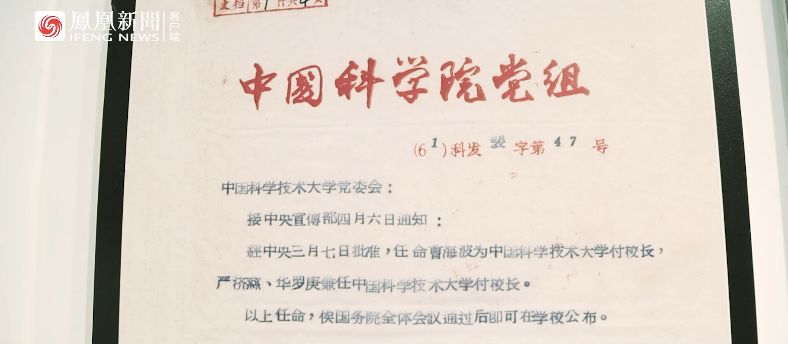 鳳凰新聞
客户端
IFENG NEWS
中国科学院党组
(61)科发 字第 47 号
中国科学技术大学党委会：
接中央宣傳部四月六日通知：
經中央三月七日批准，任命曹海波为中国科学技术大学付校长，
严济慈、华罗庚兼任中国科学技术大学付校长。
以上任命，俟国务院全体会议通过后即可在学校公布。